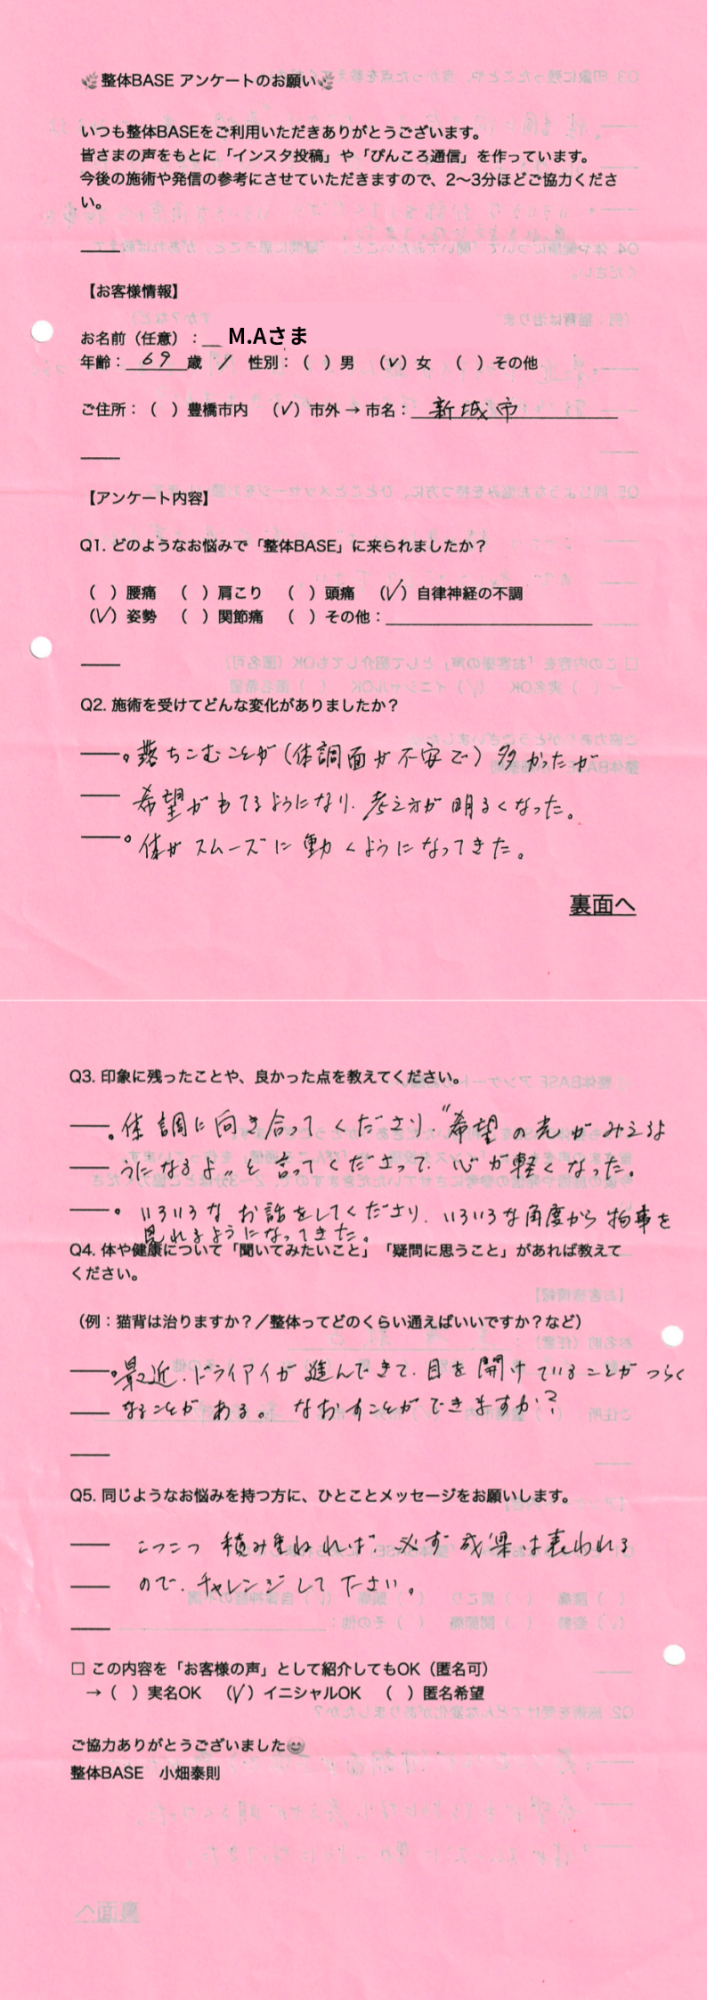 🌿整体BASE アンケートのお願い🌿
いつも整体BASEをご利用いただきありがとうございます。
皆さまの声をもとに「インスタ投稿」や「ぴんころ通信」を作っています。
今後の施術や発信の参考にさせていただきますので、2〜3分ほどご協力くださ
い。
【お客様情報】
お名前（任意）：＿ M.Aさま
年齢：69歳 / 性別：（ ）男 （✓）女 （ ）その他
ご住所：（ ）豊橋市内 （✓）市外 → 市名：新城市
【アンケート内容】
Q1. どのようなお悩みで「整体BASE」に来られましたか？
（ ）腰痛 （ ）肩こり （ ）頭痛 （✓）自律神経の不調
（✓）姿勢 （ ）関節痛 （ ）その他：
Q2. 施術を受けてどんな変化がありましたか？
。落ちこむことが（体調面が不安で）多かったが
希望がもてるようになり、考え方が明るくなった。
。体がスムーズに動くようになってきた。
裏面へ
Q3. 印象に残ったことや、良かった点を教えてください。
。体調に向き合てくださり、"希望の光がみえるよ
うになるよ"と言ってくださって、心が軽くなった。
。いろいろなお話をしてくださり、いろいろな角度から物事を
見れるようになってきた。
Q4. 体や健康について「聞いてみたいこと」「疑問に思うこと」があれば教えて
ください。
（例：猫背は治りますか？／整体ってどのくらい通えばいいですか？など）
。最近、ドライアイが進んできて、目を開けていることがつらく
なることがある。なおすことができますか？
Q5. 同じようなお悩みを持つ方に、ひとことメッセージをお願いします。
こつこつ積み重ねれば、必ず成果は表われる
ので、チャレンジして下さい。
□ この内容を「お客様の声」として紹介してもOK（匿名可）
→（ ）実名OK （✓）イニシャルOK （ ）匿名希望
ご協力ありがとうございました😊
整体BASE 小畑泰則